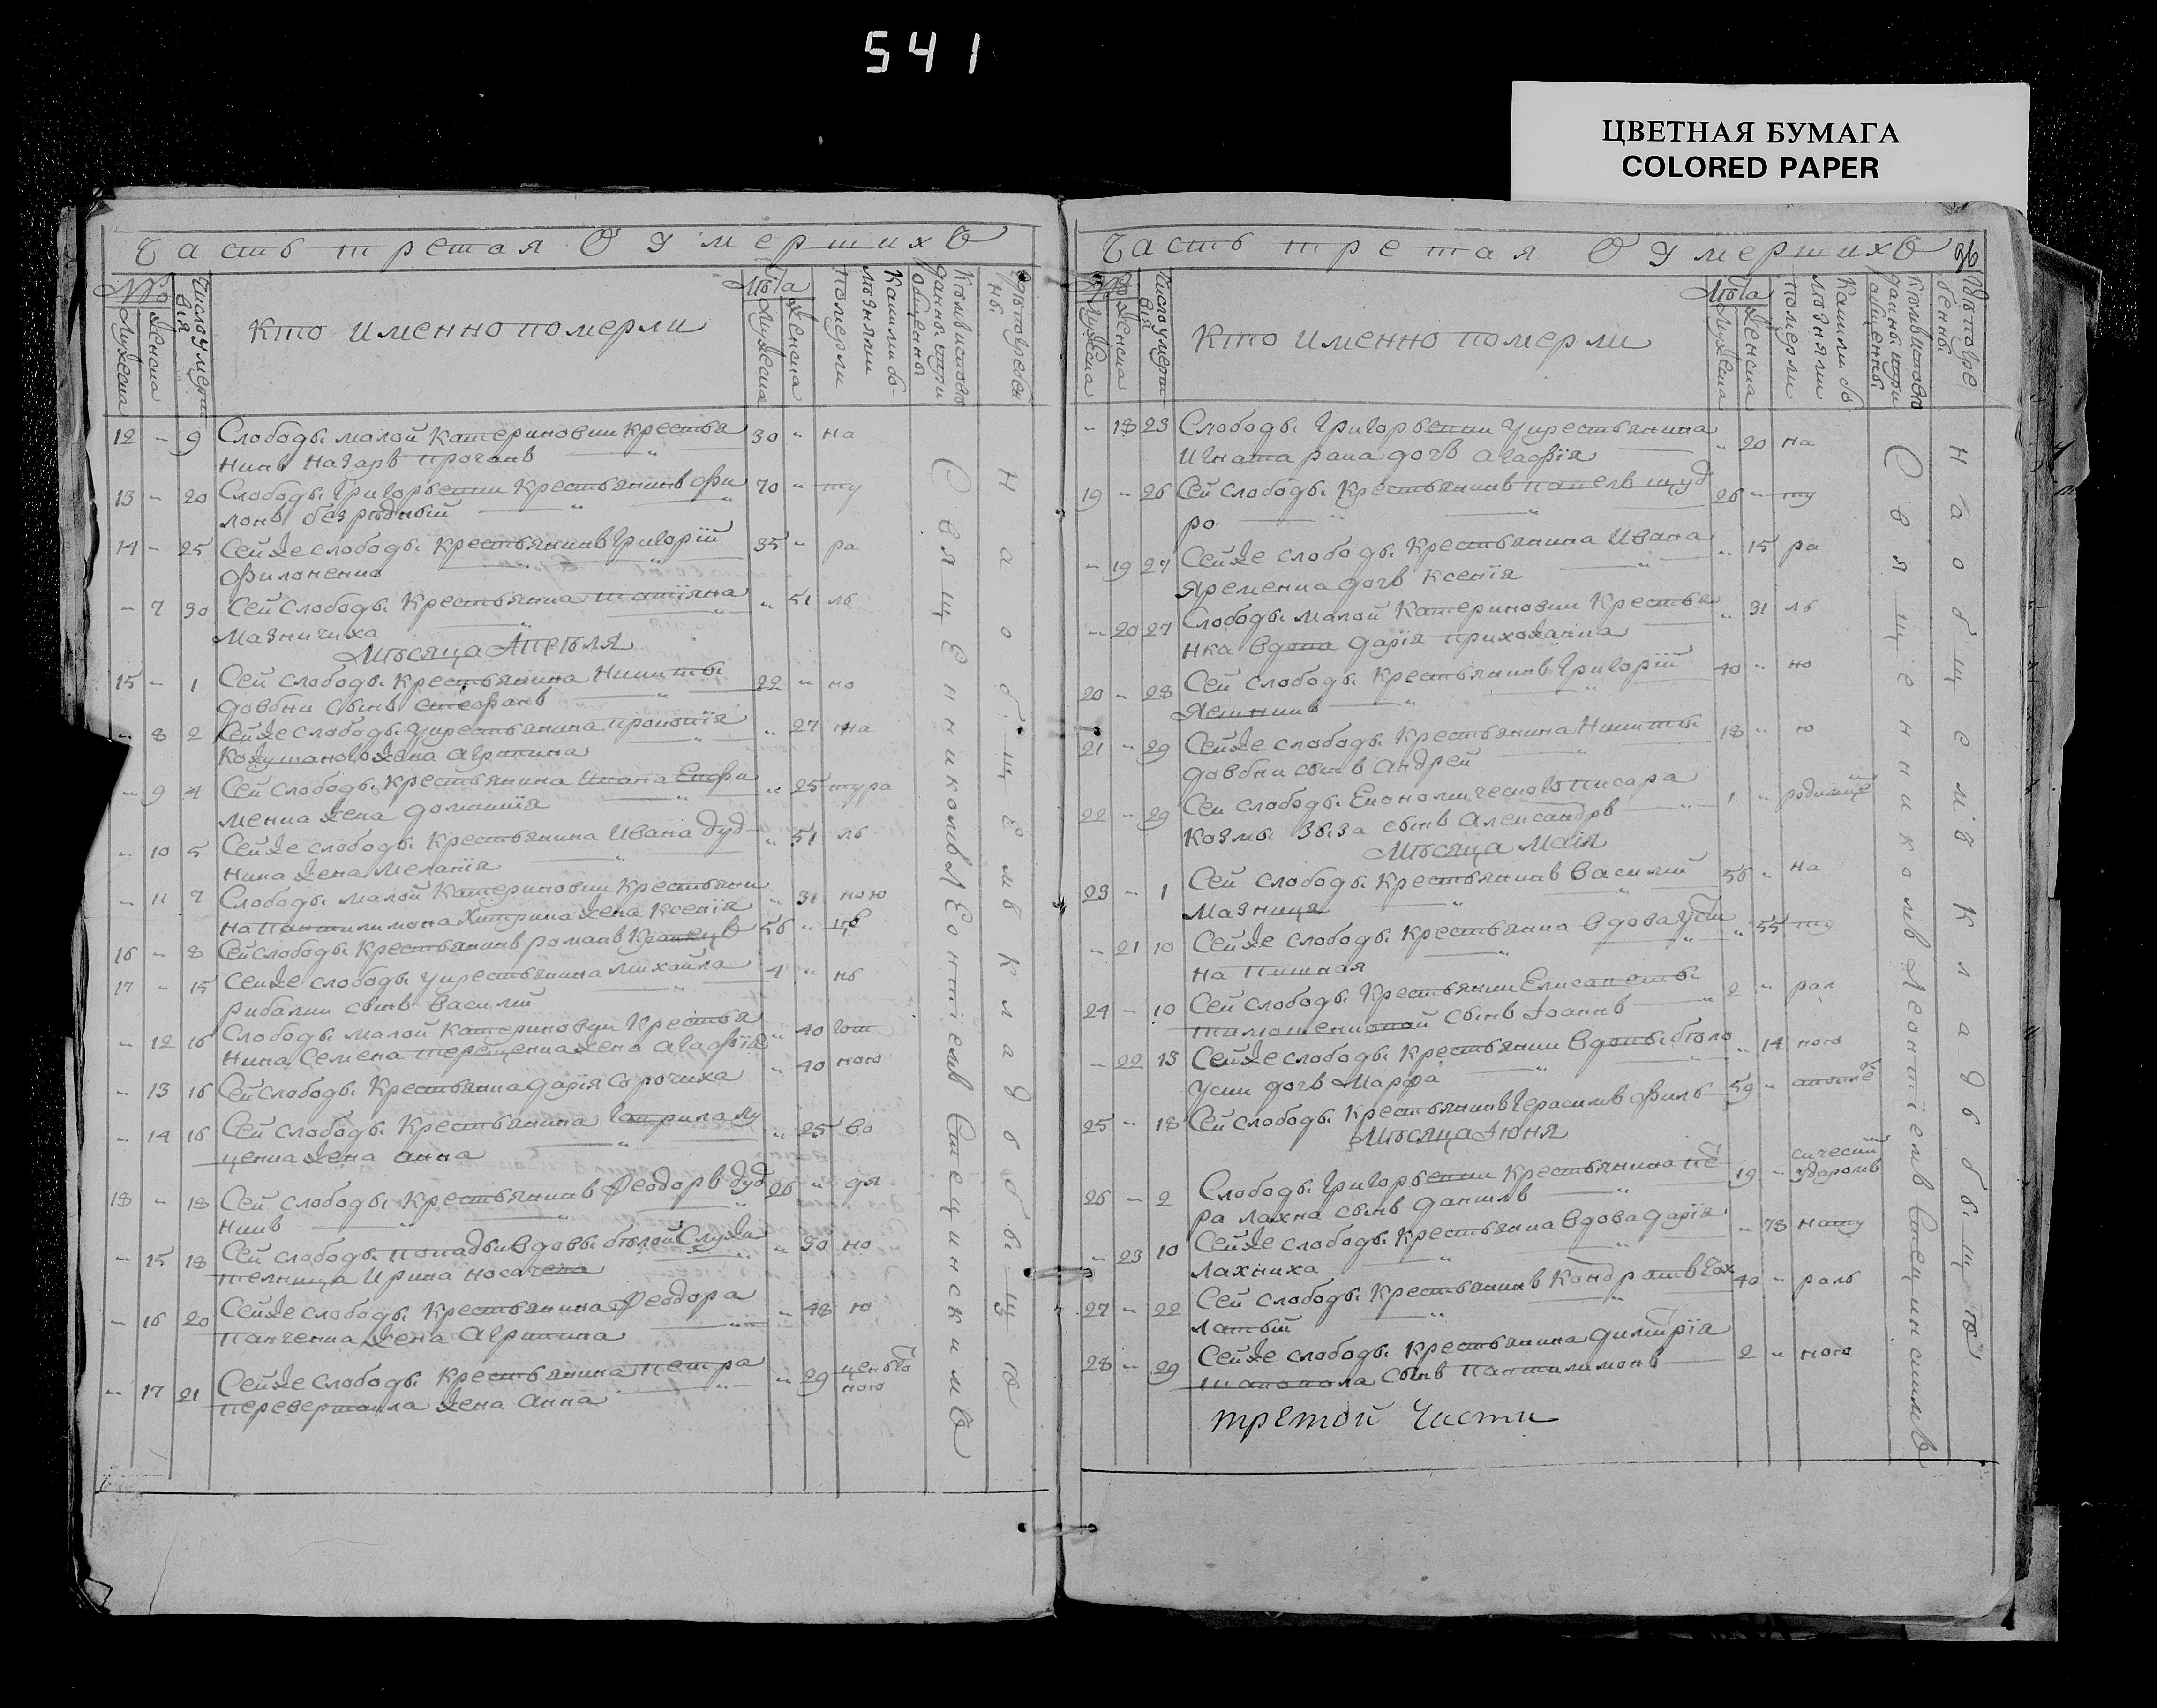 541
ЦВЕТНАЯ БУМАГА
COLORED PAPER
Часть третая О Умершихъ
№
Мужеска
женска
Число умертвія
Кто именно померли
Лѣта
Мужеска
женска
Какими болѣзнями померли
Кѣмъ исповѣданы и приобщены
Гдѣ погребены
12 - 9 Слободы малой Катериновки крестья 30 " на
нинъ Назаръ прочанъ
13 - 20 Слободы Григорьевки Крестьянинъ фи 70 " ту
лонъ безродный
14 - 25 Сей же слободы Крестьянинъ Григорій 35 " ра
Филоненко
- 7 30 Сей Слободы Крестьянка татіяна " 51 ль
Мазничиха
Мѣсяца Апреля
15 - 1 Сей слободы Крестьянина Никиты 22 " но
довбни сынъ стефанъ
- 8 2 Сей же слободы Укрестьянина прокопія " 27 на
Кожушаного жена Агрипина
- 9 4 Сей слободы Крестьянина Ивана Ефи " 25 тура
менка жена домникія
- 10 5 Сей же слободы Крестьянина Ивана дуд " 51 ль
ника жена меланія
- 11 7 Слободы малой Катериновки Крестьяни " 31 ною
на Пантилимона Хитрика жена Ксенія
16 - 8 Сей слободы Крестьянинъ романъ Кравецъ 56 "
17 - 15 Сей же слободы Укрестьянина михайла 4 " нь
рибалки сынъ Василий
- 12 16 Слободы малой Катериновки Крестья " 40
нина Семена терещенка жена Агафія
- 13 16 Сей слободы Крестьянка дарія Сорочиха " 40 ною
- 14 16 Сей слободы Крестьянина Гаврила лу " 25 во
ценка жена анна
18 - 18 Сей слободы Крестьянинъ Феодоръ дуд 26 " дя
никъ
- 15 18 Сей слободы попадьи вдовы бѣлой Служи " 30 но
телница Ирина носачева
- 16 20 Сей же слободы Крестьянина Феодора " 48 ю
панченка жена Агрипина
- 17 21 Сей же слободы Крестьянина петра " 29 ною
перевертайла жена Анна
Священникомъ Леонтіемъ Стецинскимъ
На общемъ кладбищѣ
Часть третая О Умершихъ 96
№
Мужеска
женска
Число умертвія
Кто именно померли
Лѣта
Мужеска
женска
Какими болѣзнями померли
Кѣмъ исповѣданы и приобщены
Гдѣ погребены
- 18 23 Слободы Григорьевки Укрестьянина " 20 на
Игната рака дочь агафія
19 - 26 Сей слободы Крестьянинъ павелъ щуд 26 " ту
ро
- 19 27 Сей же слободы Крестьянина Ивана " 15 ра
Яременка дочь Ксенія
- 20 27 Слободы малой Катериновки Крестья " 31 ль
нка вдова дарія приходкина
20 - 28 Сей слободы Крестьянинъ Григорій 40 " но
21 - 29 Сей же слободы Крестьянина Никиты 18 " ю
довбни сынъ андрей
22 - 29 Сей слободы Економическаго писара 1 "
Козмы Зыза сынъ александръ
Мѣсяца Маія
23 - 1 Сей слободы Крестьянинъ василий 56 " на
Мазница
- 21 10 Сей же слободы Крестьянка вдова Усти " 55 ту
на
24 - 10 Сей слободы Крестьянки Елисаветы 2 " рал
тимошенковой сынъ Іоаннъ
- 22 13 Сей же слободы Крестьянки вдовы бѣло " 14 ною
Уски дочь Марфа
25 - 18 Сей слободы Крестьянинъ Герасимъ филь 59 "
Мѣсяца Іюня
26 - 2 Слободы Григорьевки Крестьянина пе 19 "
ра лахна сынъ данилъ
- 23 10 Сей же слободы Крестьянка вдова дарія " 78 нату
лахниха
27 - 22 Сей слободы Крестьянинъ Кондратъ 40 " раль
латый
28 - 29 Сей же слободы Крестьянина димитрія 2 " ною
сынъ пантилимонъ
третой части
Священникомъ Леонтіемъ Стецинскимъ
На общемъ кладбищѣ